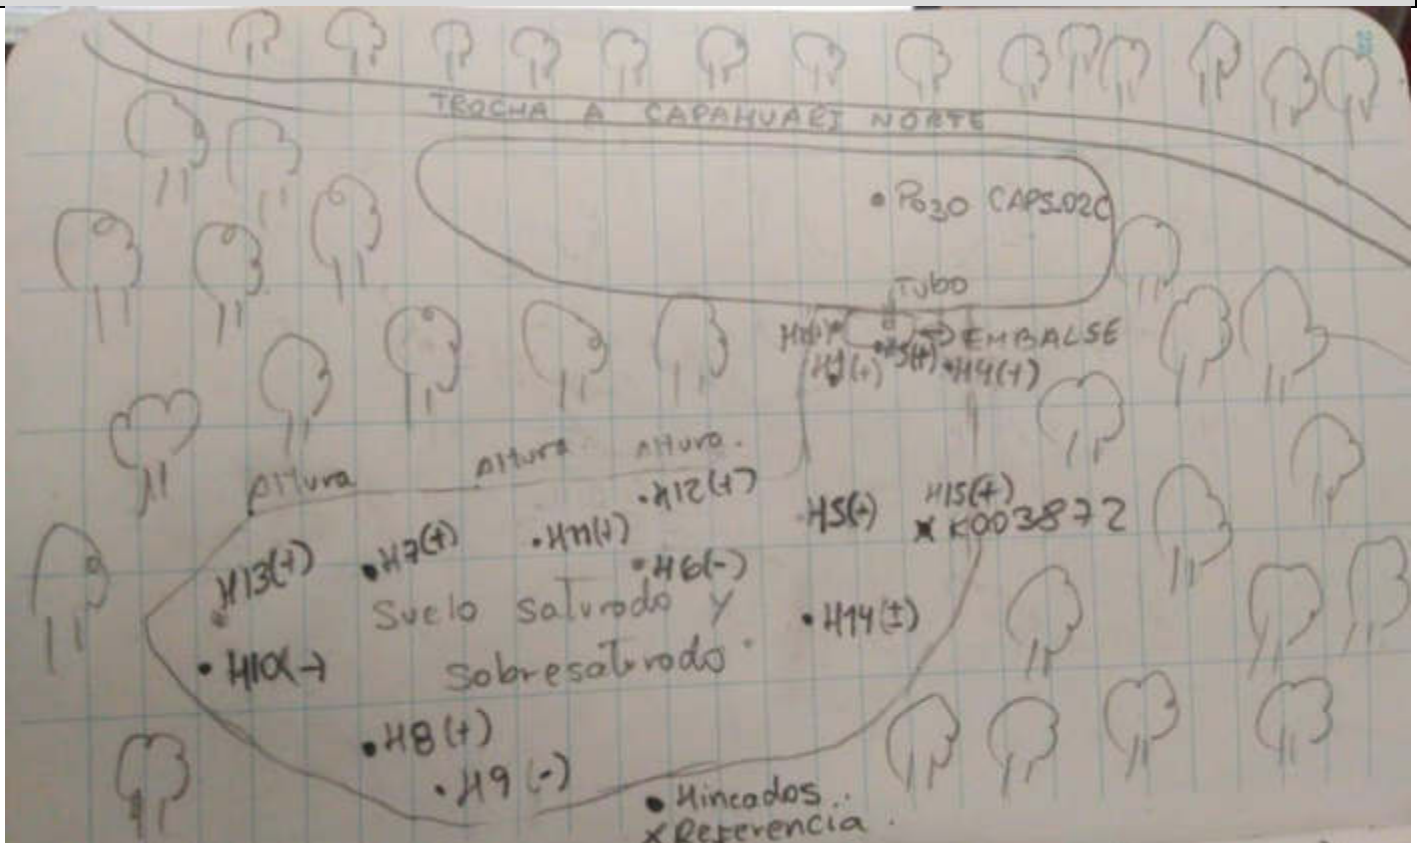 TROCHA A CAPAHUARI NORTE
• Pozo CAPS.02C
Tubo
EMBALSE
H3(+)
• H4(+)
Altura Altura Altura.
• H12(+)
H5(-)
H15(+)
x K003872
H13(+)
• H7(+)
• H11(+)
• H6(-)
Suelo Saturado y
Sobresaturado.
• H14(±)
• H10(-)
• H8(+)
• H9(-)
• Hincados..
x Referencia.